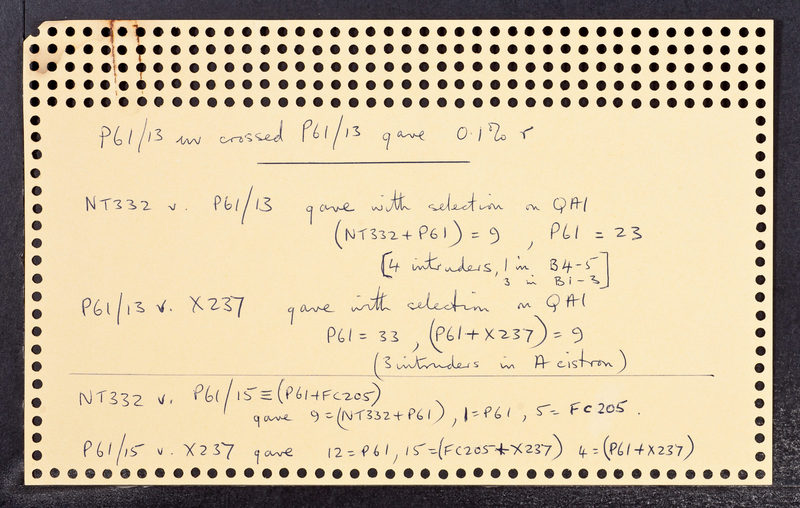 P61/13 uv crossed P61/13 gave 0.1% r
NT332 v. P61/13 gave with selection on QA1
(NT332+P61) = 9 , P61 = 23
[4 intruders, 1 in B4-5
3 in B1-3]
P61/13 v. X237 gave with selection on QA1
P61 = 33 , (P61+X237) = 9
(3 intruders in A cistron)
NT332 v. P61/15 ≡ (P61+FC205)
gave 9=(NT332+P61), 1=P61, 5= FC205.
P61/15 v. X237 gave 12=P61, 15=(FC205+X237) 4=(P61+X237)